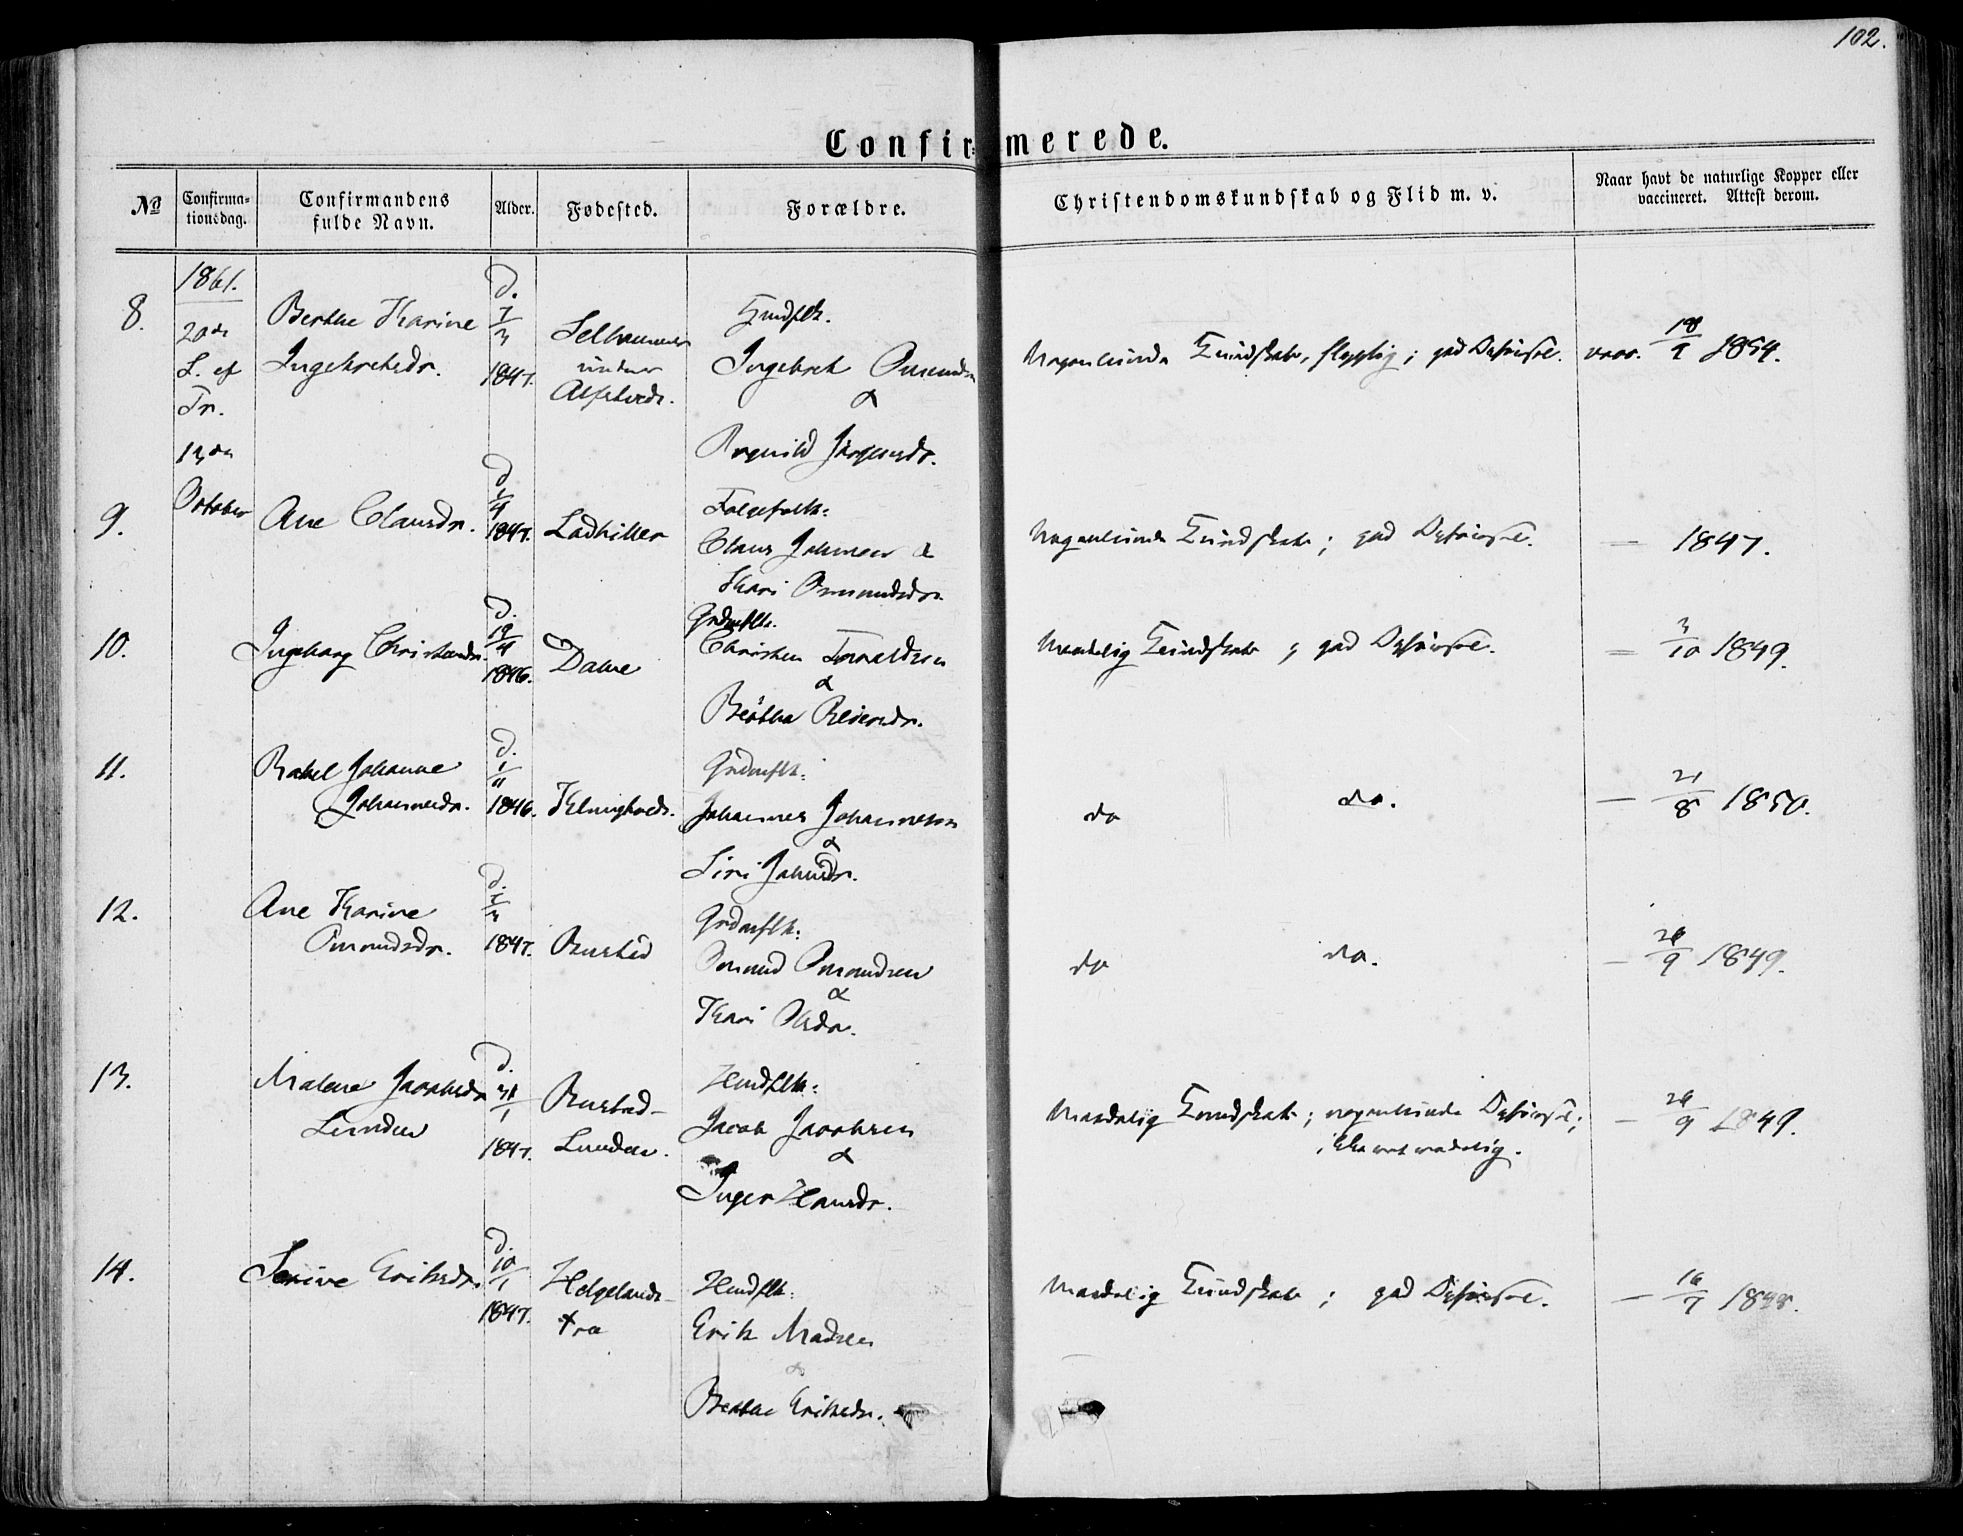 102.
Confirmerede.
№
Confirmationsdag.
Confirmandens
fulde Navn.
Alder.
Fødested.
Forældre.
Christendomskundskab og Flid m. v.
Naar havt de naturlige Kopper eller
vaccineret. Attest derom.
1861.
20de
S. ef
Tr.
13de
October
8.
Berthe Karine
Ingebretsdr.
d.
7/3
1847.
under
Husflk.
Ingebret Omunds
&
Ragnild Jørgensdr.
Nogenlunde Kundskab, flygtig; god Opførsel.
vacc. 18/9 1854.
9.
Ane Clausdr.
d
1/4
1847.
Ladhiller
Claus Johnsen &
Kari Osmundsdr.
Nogenlunde Kundskab; god Opførsel.
— 1847.
10.
Ingeborg Christensdr.
d.
19/4
1846.
Dalene
Grdmflk.
Christen Tarraldsen
&
Bertha Reiersdr.
Maadelig Kundskab; god Opførsel.
= 3/10 1849.
11.
Rakel Johanne
Johannesdr.
d.
1/11
1846.
Klungtveds.
Grdmflk.
Johannes Johannesen
&
Siri Johnsdr.
do do.
— 21/8 1850.
12.
Ane Karine
Omundsdr.
d.
7/3
1847.
Bustad
Grdmflk.
Omund Omundsen
&
Kari Olsdr.
do do.
— 26/9 1849.
13.
Malene Jacobsdr
Lunden
d.
31/1
1847.
Bustad-
Lunden.
Husflk.
Jacob Jacobsen
&
Inger Hansdr.
Maadelig Kundskab; nogenlunde Opførsel;
— 26/9 1849.
14.
Serine Eriksdr.
d.
10/1
1847.
Helgelands-
træ
Husflk.
Erik Madsen
&
Berthe Eriksdr.
Maadelig Kundskab; god Opførsel.
— 16/7 1848.